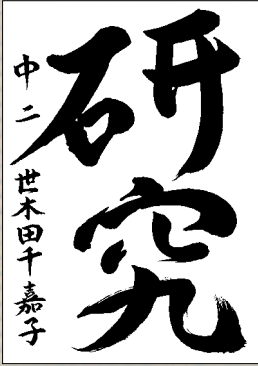 研究
中二 世木田千嘉子